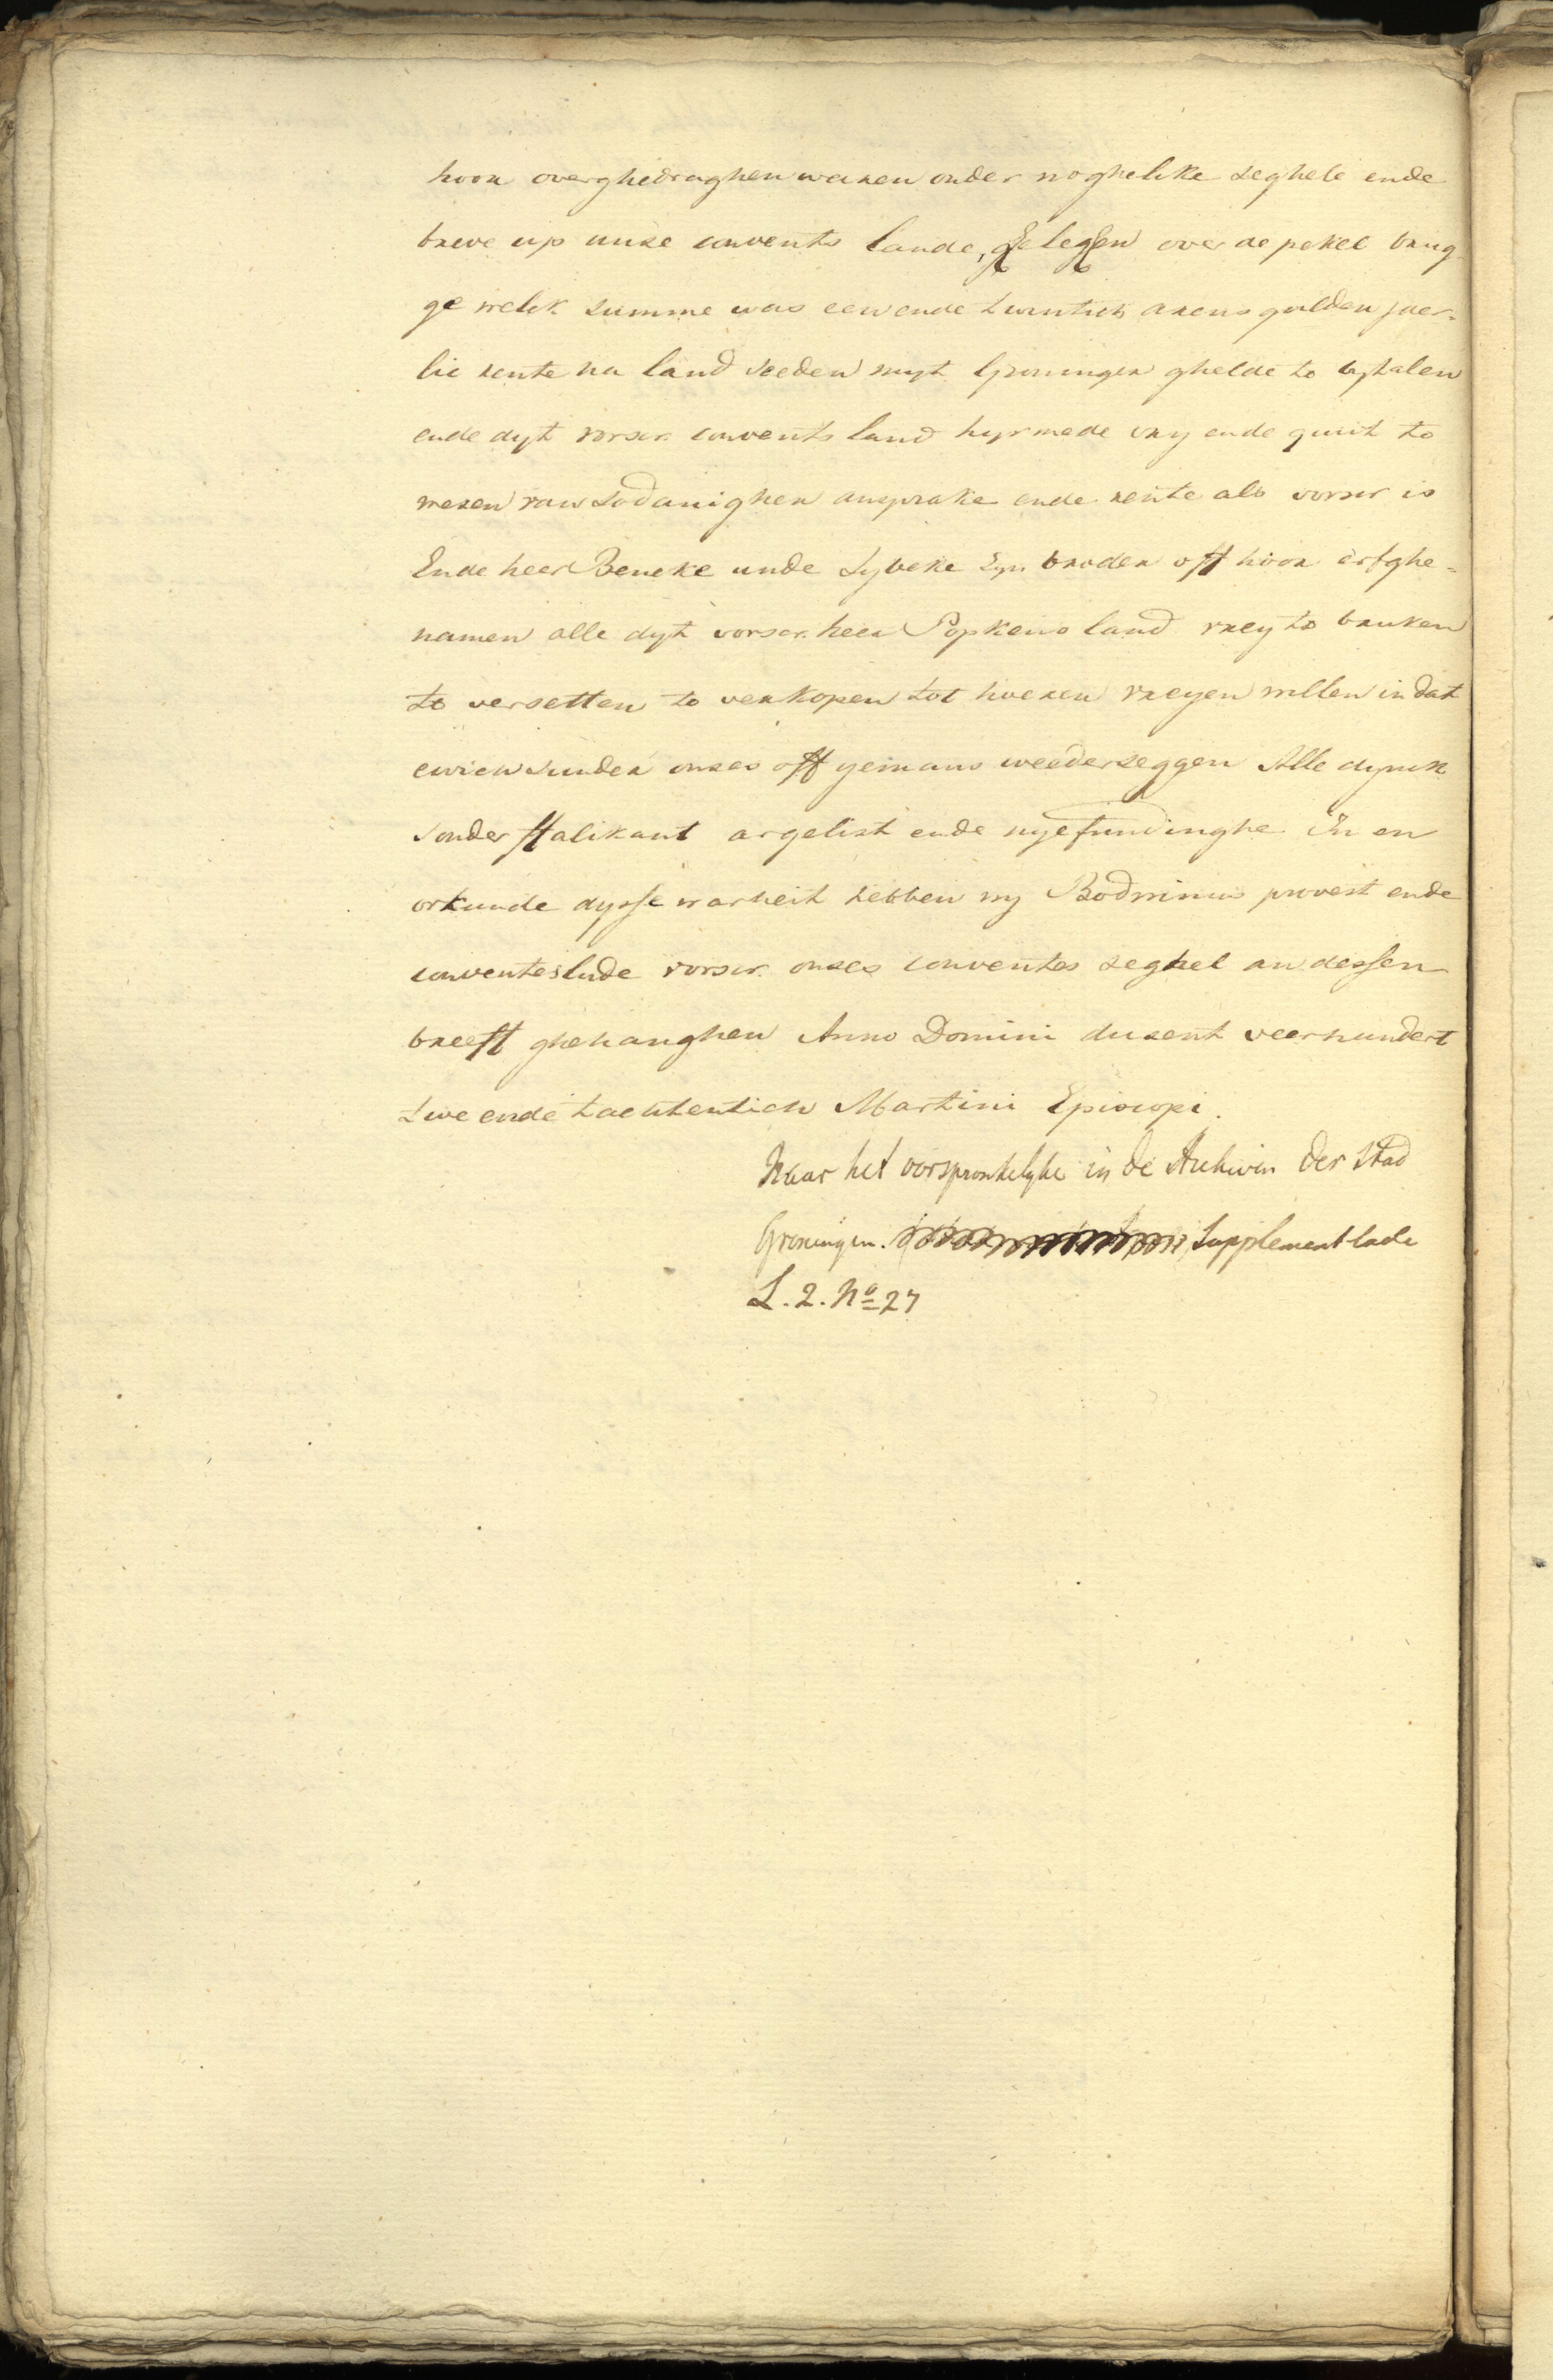 hoor overghedraghen waren onder noghelike seghele ende
breve up unse convents lande, gelegen over de pekel brug
ge welck summe was een ende twintich arens gulden jaer-
lic rente na land seeden myt Groninger ghelde to bytalen
ende dyt vorscr. convents land hyrmede vry ende quiit to
wesen van sodanighen ansprake ende rente als vorscr is
Ende heer Beneke unde Sybeke syn broder off hoor erfghe-
namen alle dyt vorscr. heer Popkens land vrey to bruken
to versetten to verkopen tot hoeren vreyen willen in dat
ewich sunder onses off yemans weederseggen Alle dynck
sonder ffalikant argelist ende nyefundinghe In en
orkunde dysse warheit hebben wy Bodwinus provest ende
conventeslude vorscr. onses conventes seghel an dessen
breeff ghehanghen Anno Domini dusent veerhundert
twe ende tachtentich Martini Episcopi.
Naar het oorspronkelyke in de Archiven der Stad
Groningen. Supplement lade
L. 2. No 27